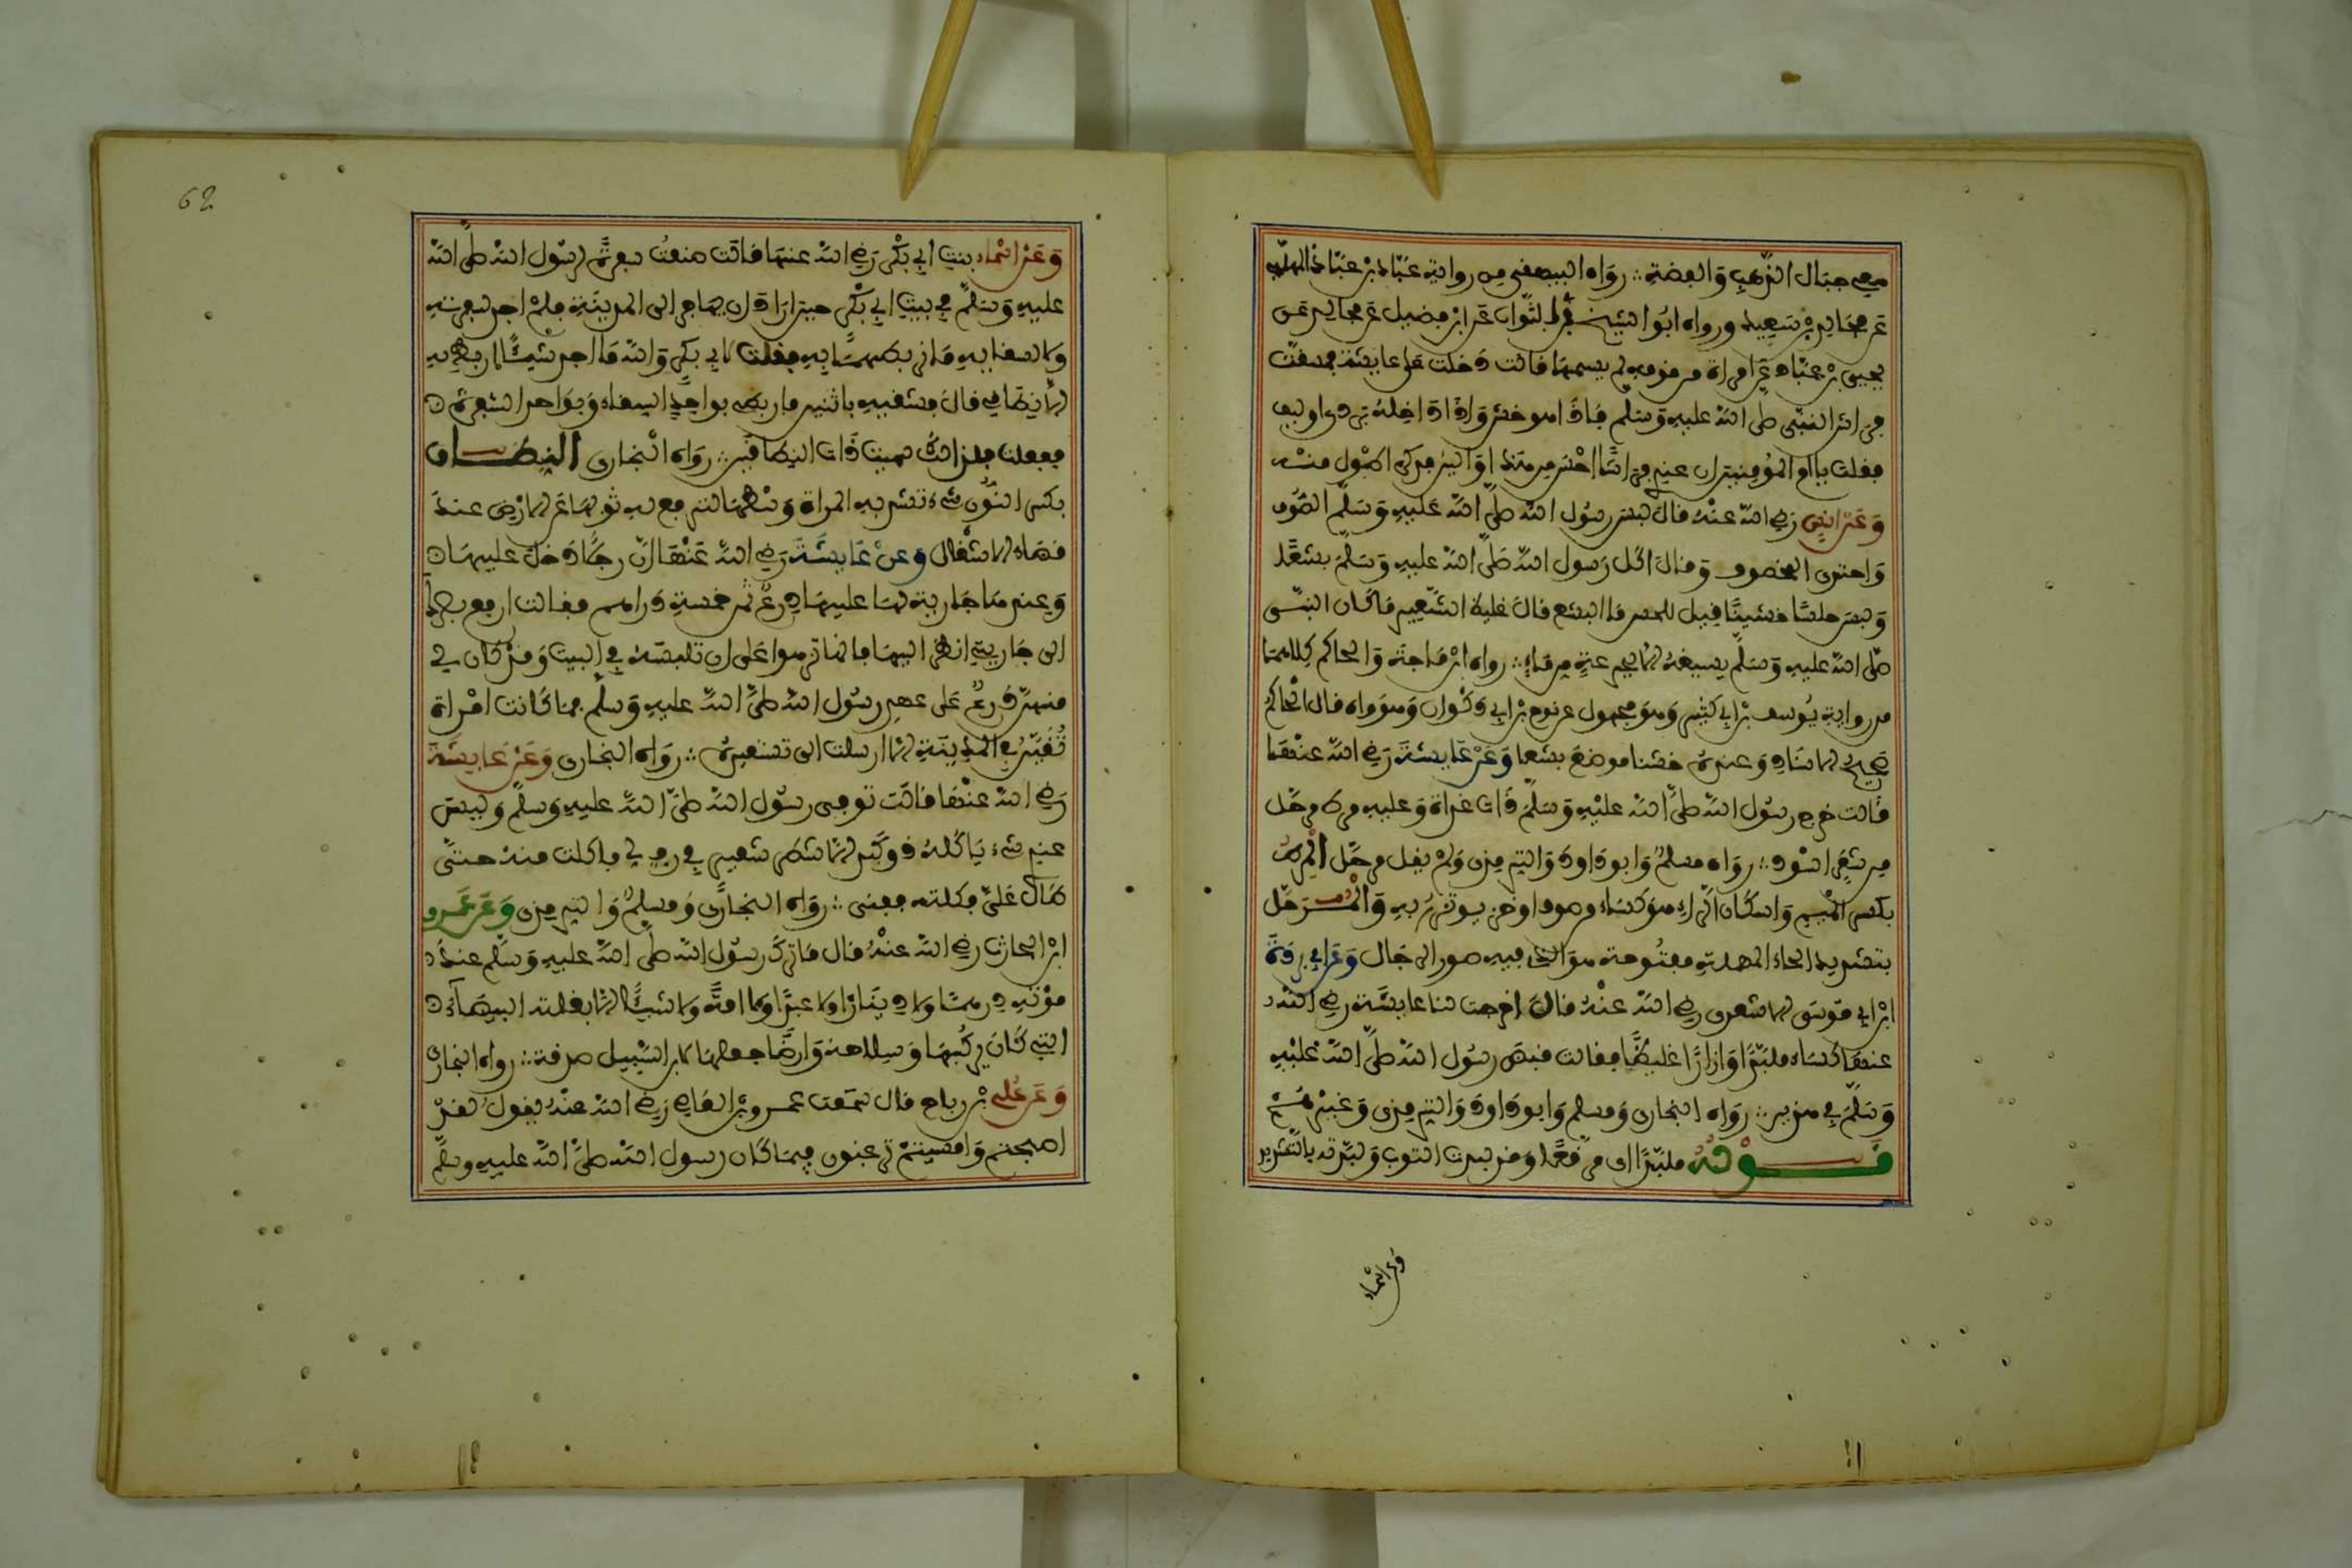 معي جبال الذهب والفضة :: رواه البيهقي من رواية عباد بن عباد المهلبي
عن مجالد بن سعيد ورواه ابو الشيخ في الثواب عن ابن فضيل عن مجالد عن
يحيى بن عباد عن امراة من قومهم لم يسمها قالت دخلت على عايشة فمسست
فراش النبي صلى الله عليه وسلم فاذا هو خشن واذا داخله بردي او ليف
فقلت يا ام المومنين ان عندي فراشا احسن من هذا والين فذكر اطول منه
وعن انس رضي الله عنه قال لبس رسول الله صلى الله عليه وسلم الصوف
واحتذى المخصوف وقال اكل رسول الله صلى الله عليه وسلم بشعا
ولبس حلسا خشينا قيل للحسن ما البشع قال غليظ الشعير ما كان النبي
صلى الله عليه وسلم يسيغه الا بجرعة من ماء :: رواه ابن ماجة والحاكم كلاهما
من رواية يوسف بن ابي كثير وهو مجهول عن نوح بن ابي ذكوان وهو واه قال الحاكم
صحيح الاسناد وعنده خشنا موضع بشعا وعن عايشة رضي الله عنها
قالت خرج رسول الله صلى الله عليه وسلم ذات غداة وعليه مرط مرحل
من شعر اسود :: رواه مسلم وابو داود والترمذي ولم يقل مرحل المرط
بكسر الميم واسكان الراء هو كساء من صوف او خز يوتزر به والمرحل
بتشديد الحاء المهملة مفتوحة هو الذي فيه صور الرحال وعن ابي بردة
ابن ابي موسى الاشعري رضي الله عنه قال اخرجت لنا عايشة رضي الله
عنها كساء ملبدا وازارا غليظا فقالت قبض رسول الله صلى الله عليه
وسلم في هذين :: رواه البخاري ومسلم وابو داود والترمذي وغيرهم
قوله ملبدا اي مرقعا وقد لبدت الثوب ولبدته بالتشديد
وعن اسماء
62
وعن اسماء بنت ابي بكر رضي الله عنها قالت صنعت سفرة لرسول الله صلى الله
عليه وسلم في بيت ابي بكر حين اراد ان يهاجر الى المدينة فلم اجد لسفرته
ولا لسقايه ما نربطهما به فقلت لابي بكر والله ما اجد شيئا اربط به
الا نطاقي قال فشقيه باثنين فاربطي بواحد السقاء وبواحد السفرة
ففعلت فلذلك سميت ذات النطاقين :: رواه البخاري النطاق
بكسر النون شيء تشد به المراة وسطها لترفع به ثوبها عن الارض عند
قضاء الاشغال وعن عايشة رضي الله عنها ان رجلا دخل عليها
وعندها جارية لها عليها درع ثمن خمسة دراهم فقالت ارفع بصرك
الى جاريتي انظر اليها فانها تزهوا على ان تلبسه في البيت وقد كان لي
منهن درع على عهد رسول الله صلى الله عليه وسلم فما كانت امراة
تقين بالمدينة الا ارسلت الي تستعيره :: رواه البخاري وعن عايشة
رضي الله عنها قالت توفي رسول الله صلى الله عليه وسلم وليس
عندي شيء ياكله ذو كبد الا شطر شعير في رف لي فاكلت منه حتى
طال علي فكلته ففني :: رواه البخاري ومسلم والترمذي وعن عمرو
ابن الحارث رضي الله عنه قال ما ترك رسول الله صلى الله عليه وسلم عند
موته درهما ولا دينارا ولا عبدا ولا امة ولا شيئا الا بغلته البيضاء
التي كان يركبها وسلاحه وارضا جعلها لابن السبيل صدقة :: رواه البخاري
وعن علي بن رباح قال سمعت عمرو بن العاص رضي الله عنه يقول لقد
اصبحتم وامسيتم ترغبون فيما كان رسول الله صلى الله عليه وسلم